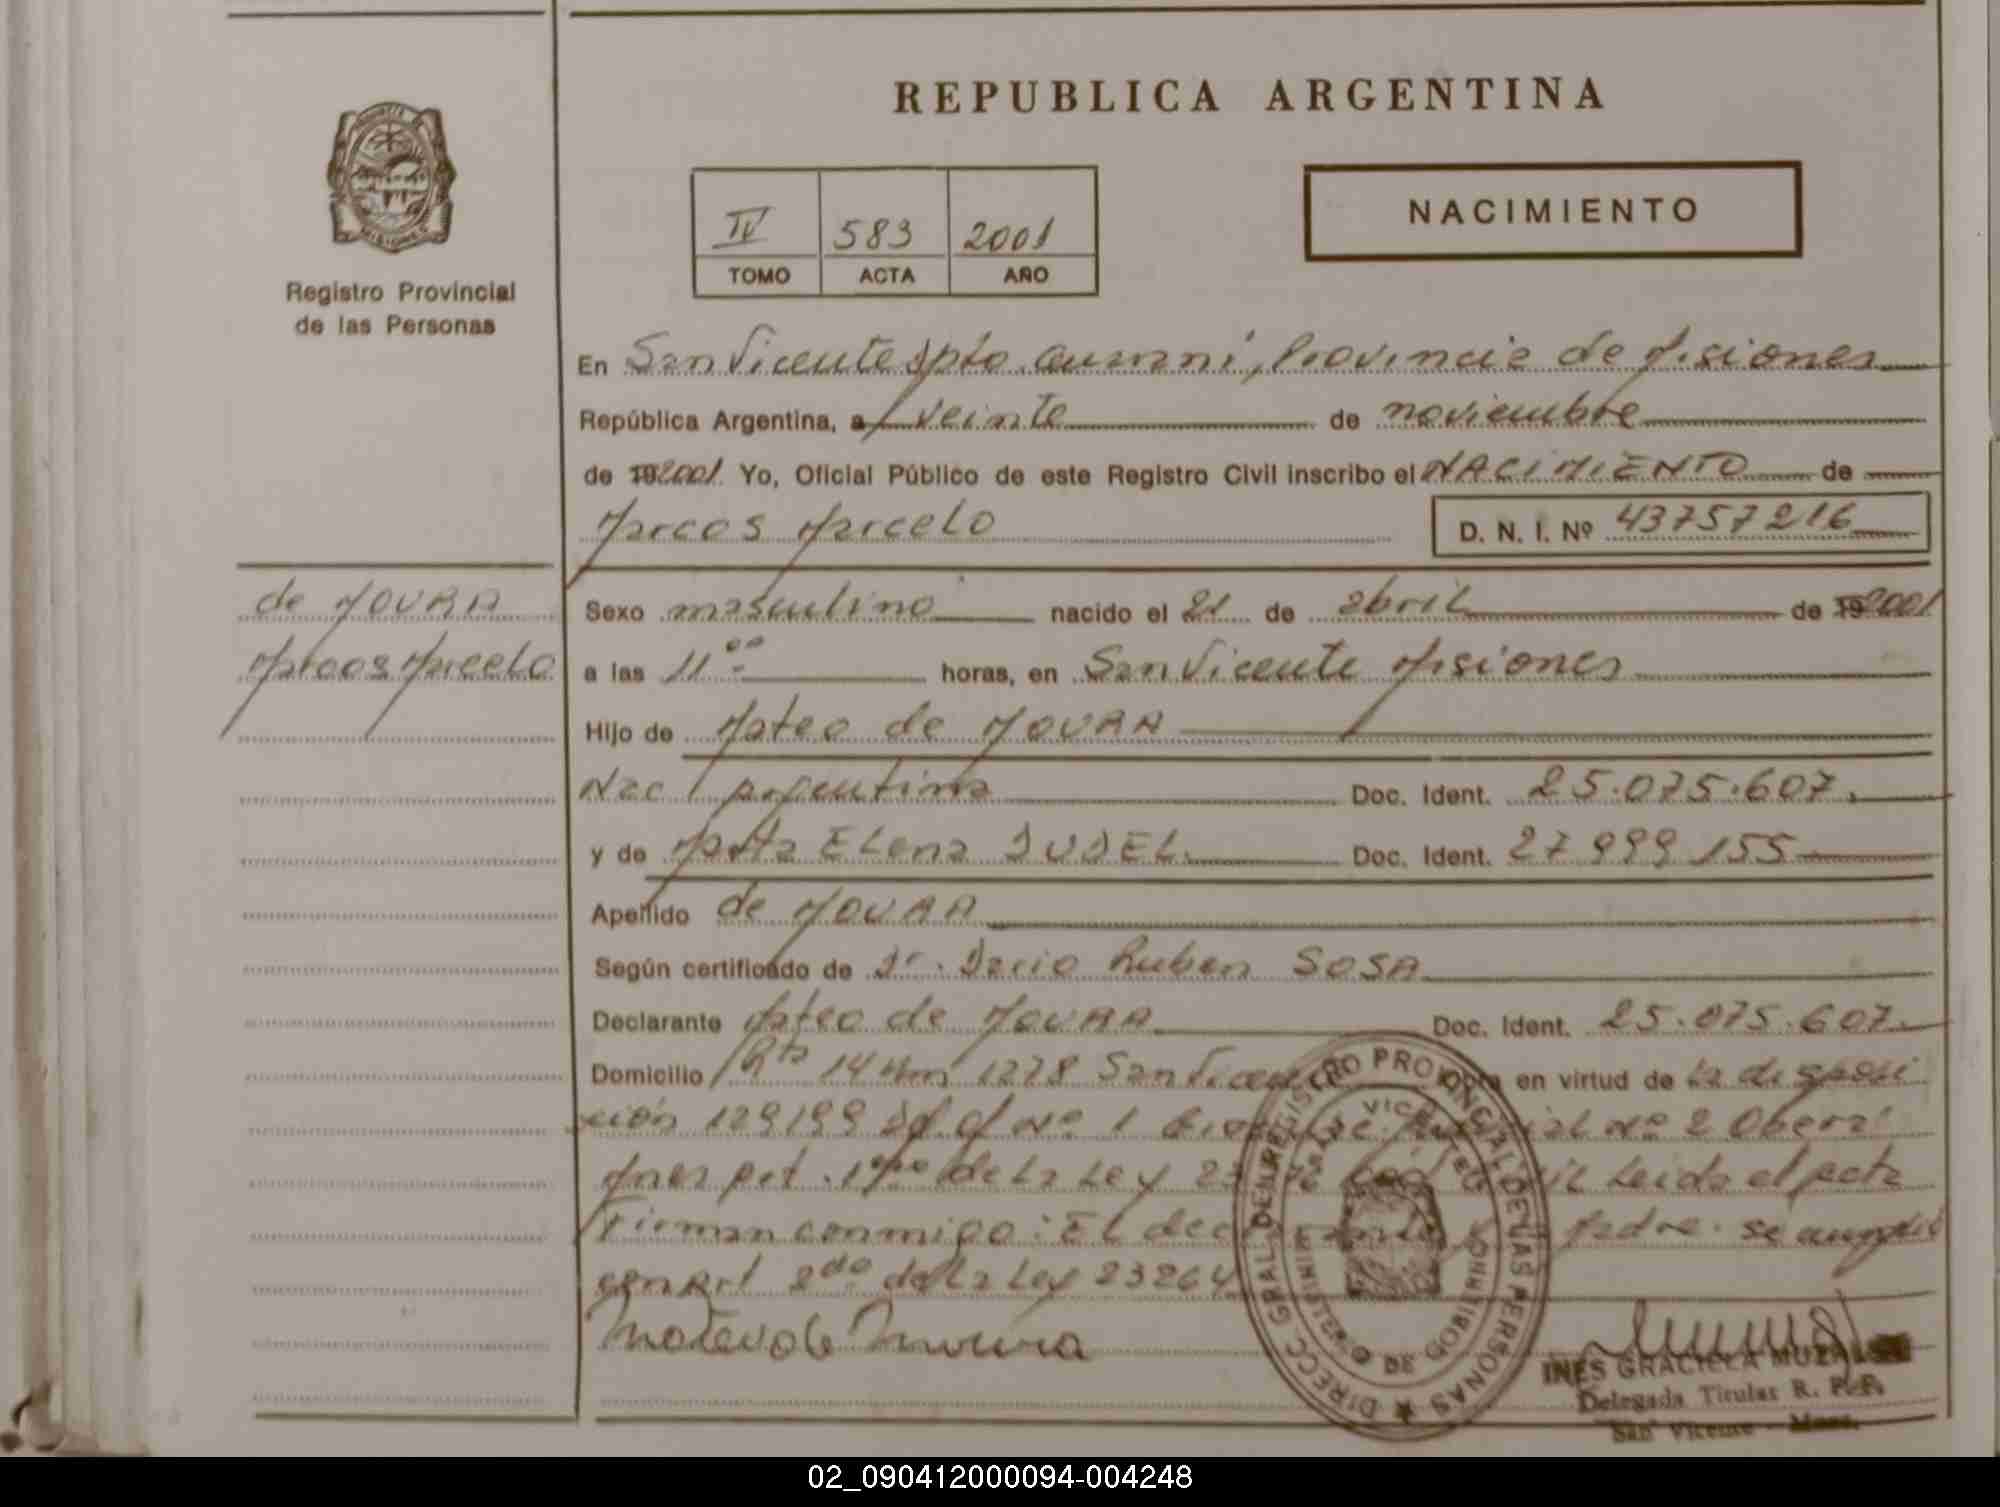 REPUBLICA ARGENTINA
MISIONES
Registro Provincial
de las Personas
IV 583 2001
TOMO ACTA AÑO
NACIMIENTO
En San Vicente Dpto. Guarani, Provincia de Misiones
República Argentina, a veinte de noviembre
de 192001 Yo, Oficial Público de este Registro Civil inscribo el NACIMIENTO de
Marcos Marcelo
D. N. I. Nº 43757216
de MOURA
Marcos Marcelo
Sexo masculino nacido el 21 de abril de 192001
a las 11 00 horas, en San Vicente Misiones
Hijo de Mateo de MOURA
Nac Argentina Doc. Ident. 25.075.607.
y de Marta Elena Doc. Ident. 27 999 155
Apellido de MOURA
Según certificado de Dr. Dario Ruben SOSA
Declarante Mateo de MOURA Doc. Ident. 25.075.607.
Domicilio Rta 14 Km 1278 San Vicente Obra en virtud de la disposi
ción 129199 Nº 1 Nº 2 Obera
Mnes art. de la Ley Leida el acta
Firman conmigo: El Padre. se cumplió
con Art 2do de la Ley 23264
Mateo de Moura
DIRECC. GRAL. DEL REGISTRO PROVINCIAL DE LAS PERSONAS
MINISTERIO DE GOBIERNO
INES GRACIELA
Delegada Titular R. P. P.
San Vicente - Mnes.
02_090412000094-004248